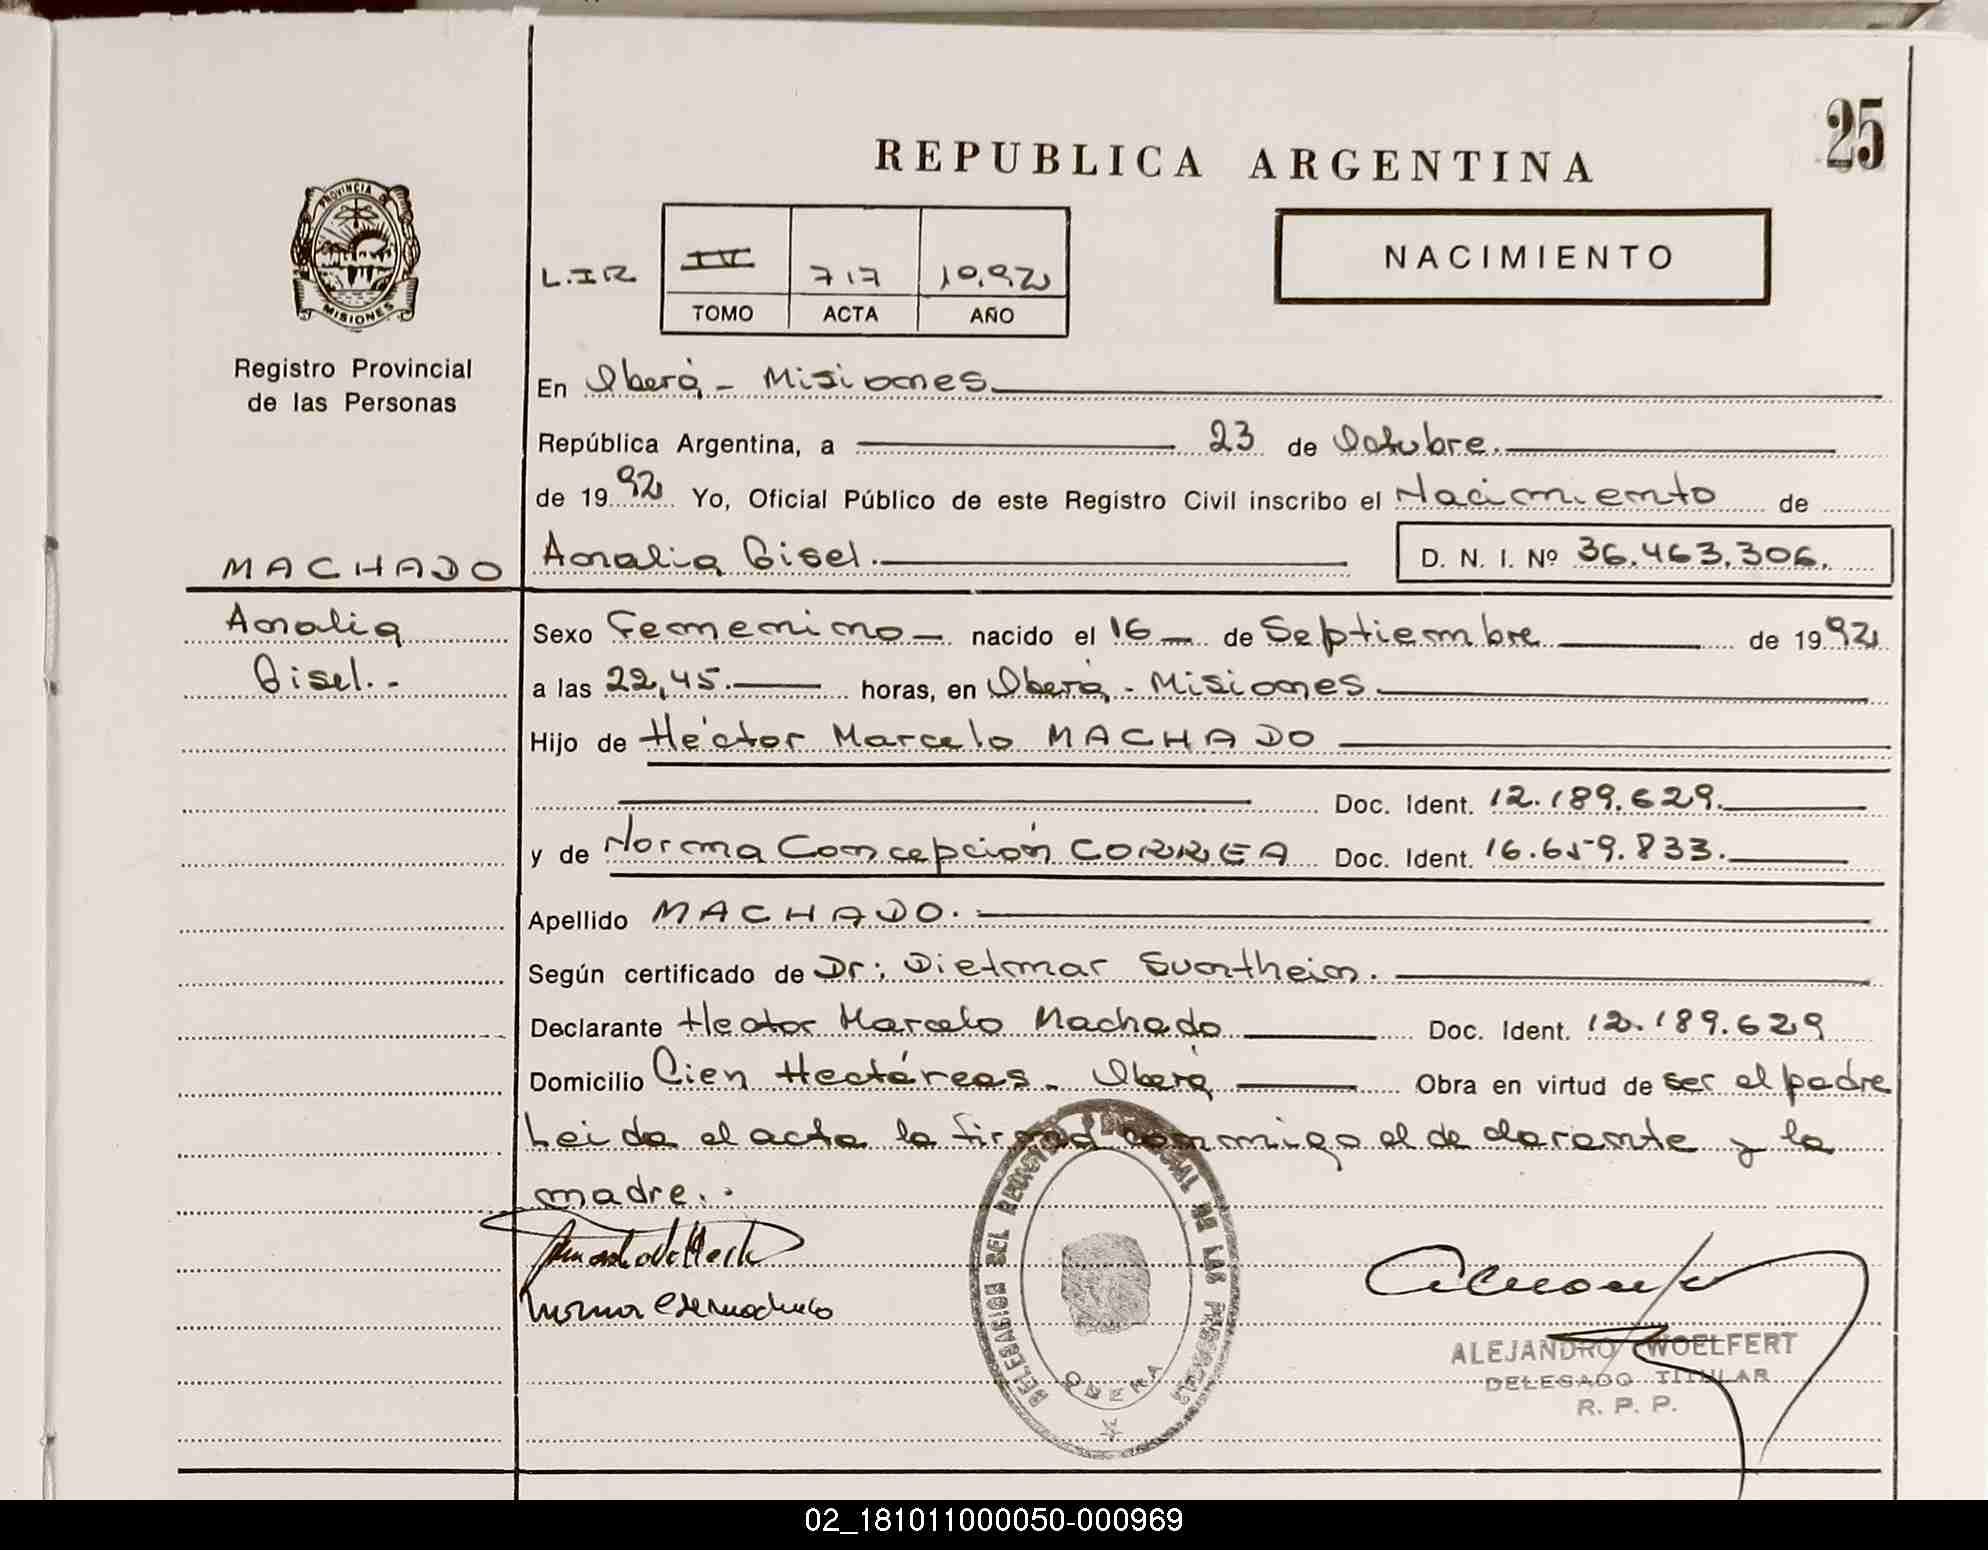 25
REPUBLICA ARGENTINA
PROVINCIA DE
MISIONES
Registro Provincial
de las Personas
L.IR IV 717 1992
TOMO ACTA AÑO
NACIMIENTO
En Oberá - Misiones
República Argentina, a 23 de Octubre.
de 1992 Yo, Oficial Público de este Registro Civil inscribo el Nacimiento de
MACHADO Analia Gisel. D. N. I. Nº 36.463.306.
Analia Sexo Femenino - nacido el 16 - de Septiembre de 1992
Gisel.- a las 22,45. horas, en Oberá - Misiones
Hijo de Héctor Marcelo MACHADO
Doc. Ident. 12.189.629.
y de Norma Concepción CORREA Doc. Ident. 16.659.833.
Apellido MACHADO.
Según certificado de Dr: Dietmar Suntheim.
Declarante Hector Marcelo Machado Doc. Ident. 12.189.629
Domicilio Cien Hectáreas - Oberá Obra en virtud de ser el padre
Leida el acta la firman conmigo el declarante y la
madre..
DELEGACION DEL REGISTRO PROVINCIAL DE LAS PERSONAS
OBERA
ALEJANDRO WOELFERT
DELEGADO TITULAR
R. P. P.
02_181011000050-000969